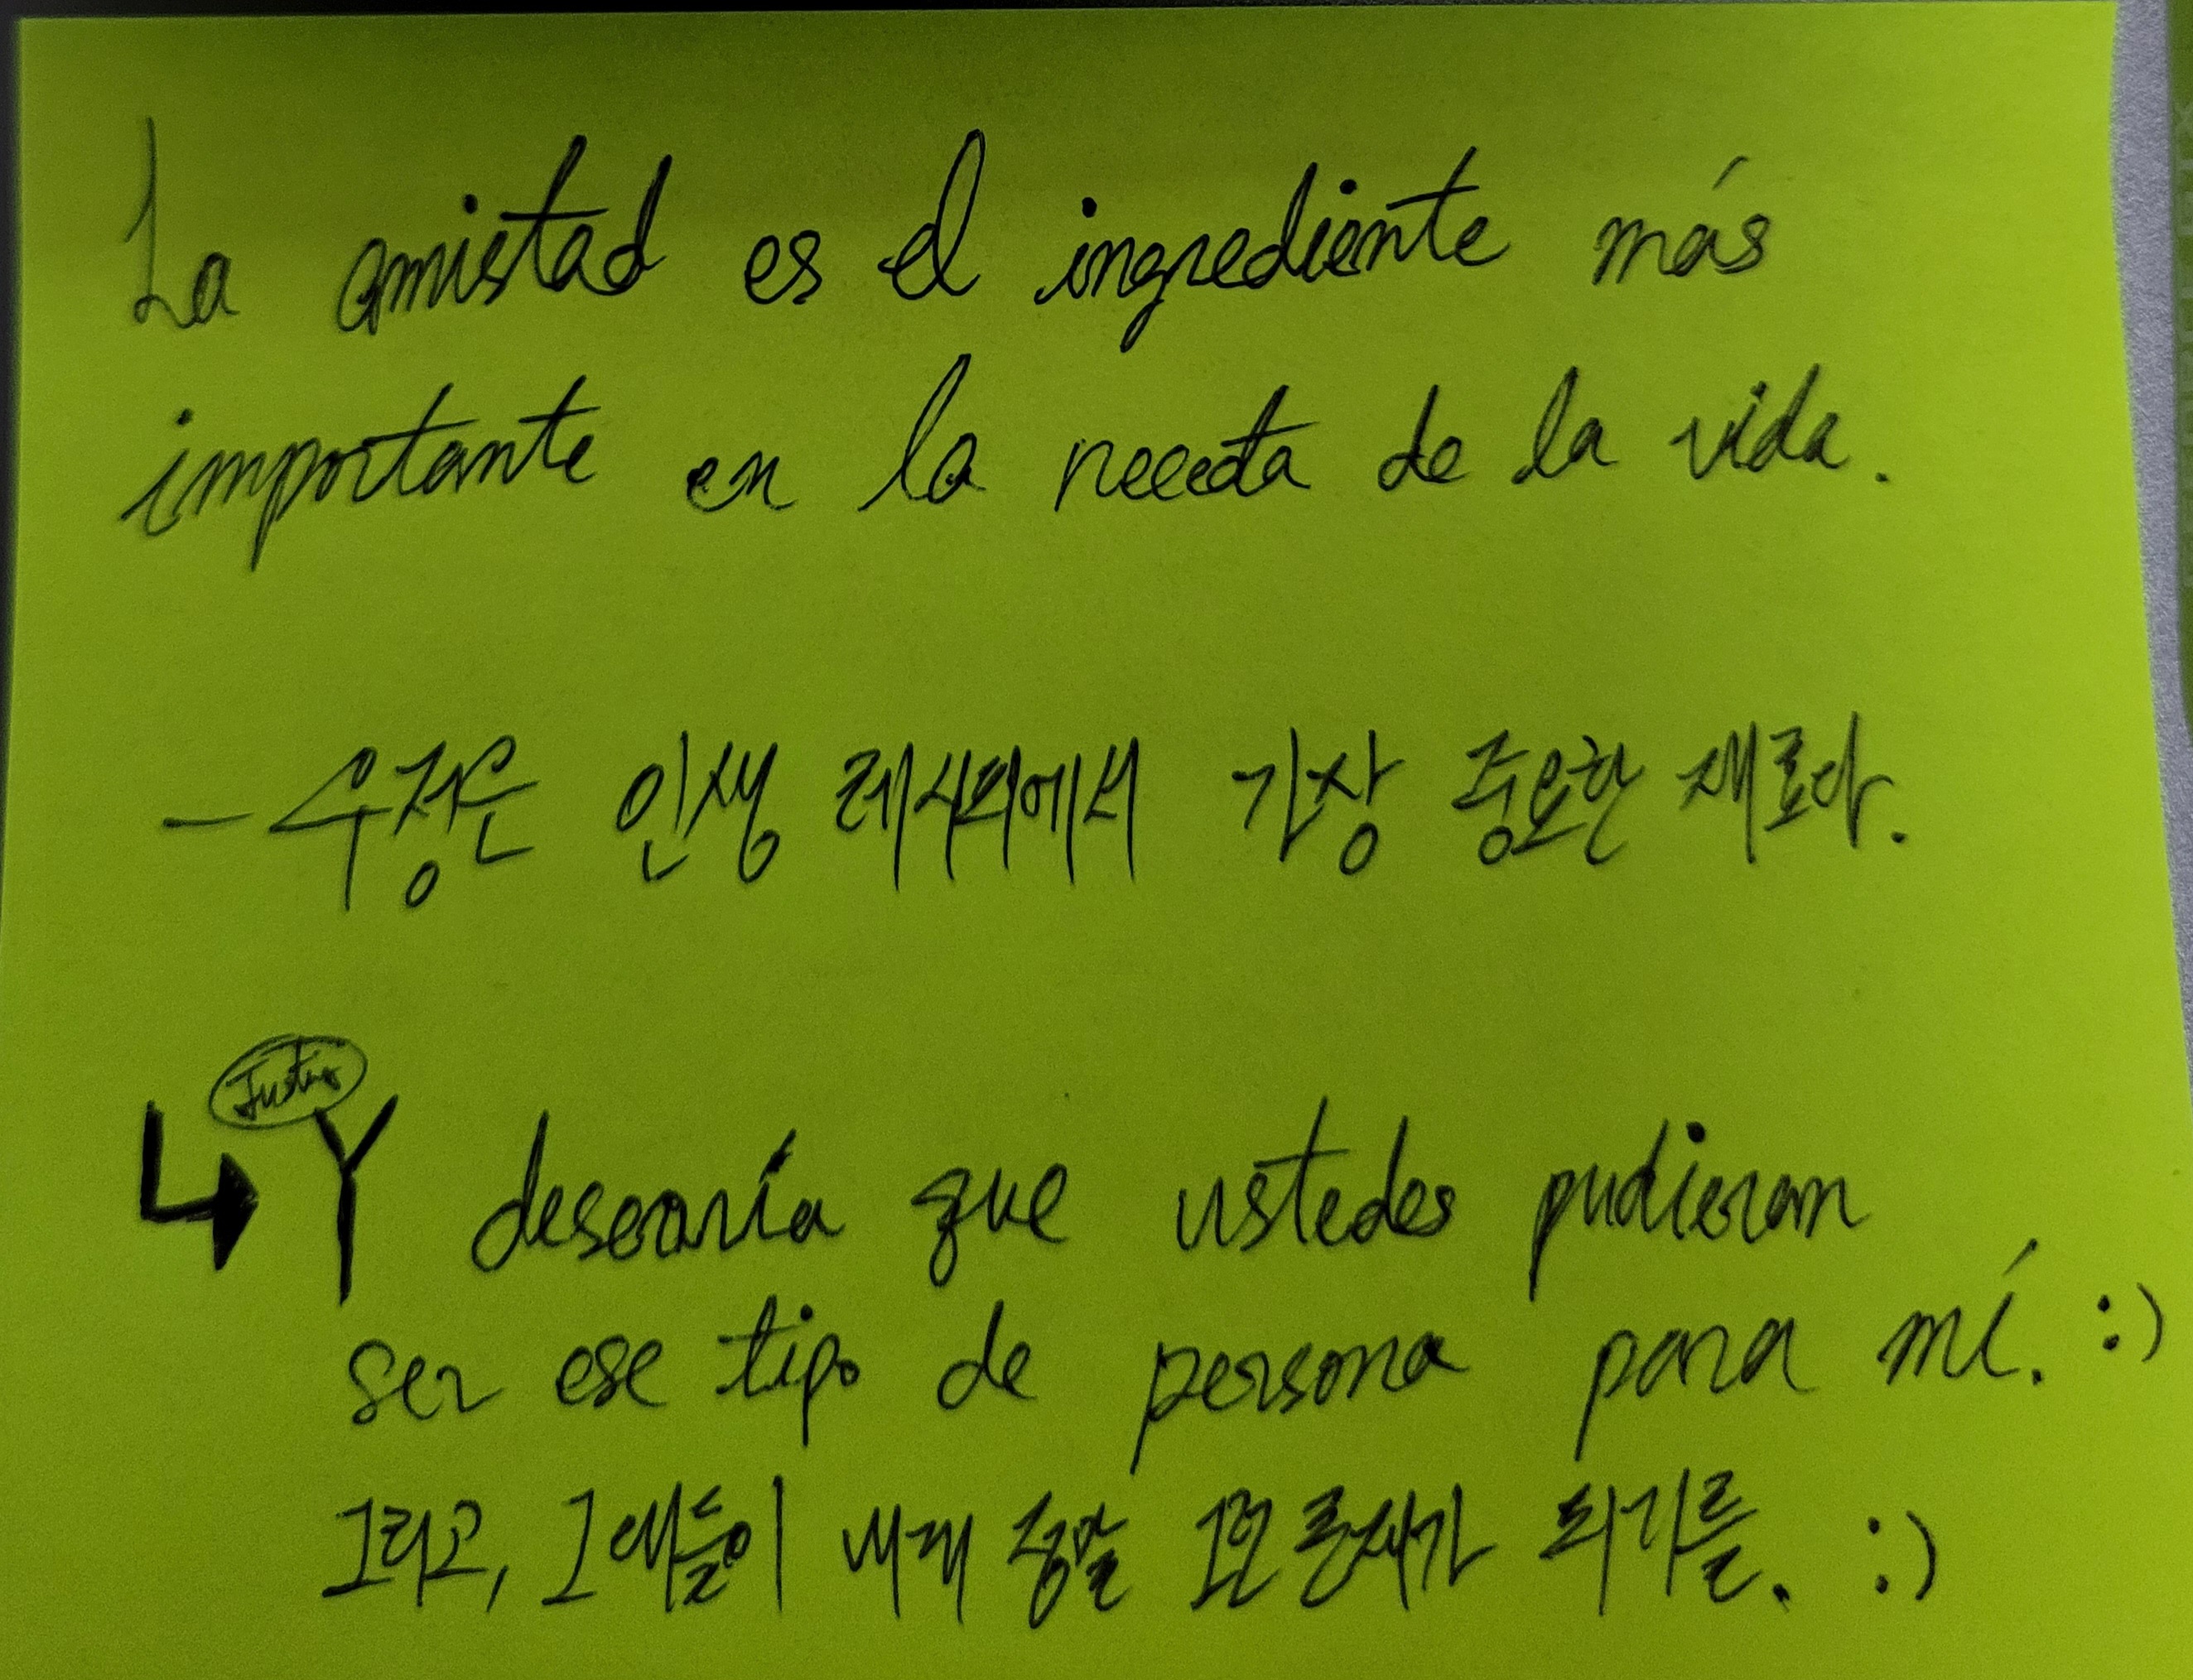 La amistad es el ingrediente más
importante en la receta de la vida.
- 우정은 인생 레시피에서 가장 중요한 재료다.
Justin
↳ Y desearía que ustedes pudieran
ser ese tipo de persona para mí. :)
그리고, 그대들이 내게 정말 그런 존재가 되기를. :)